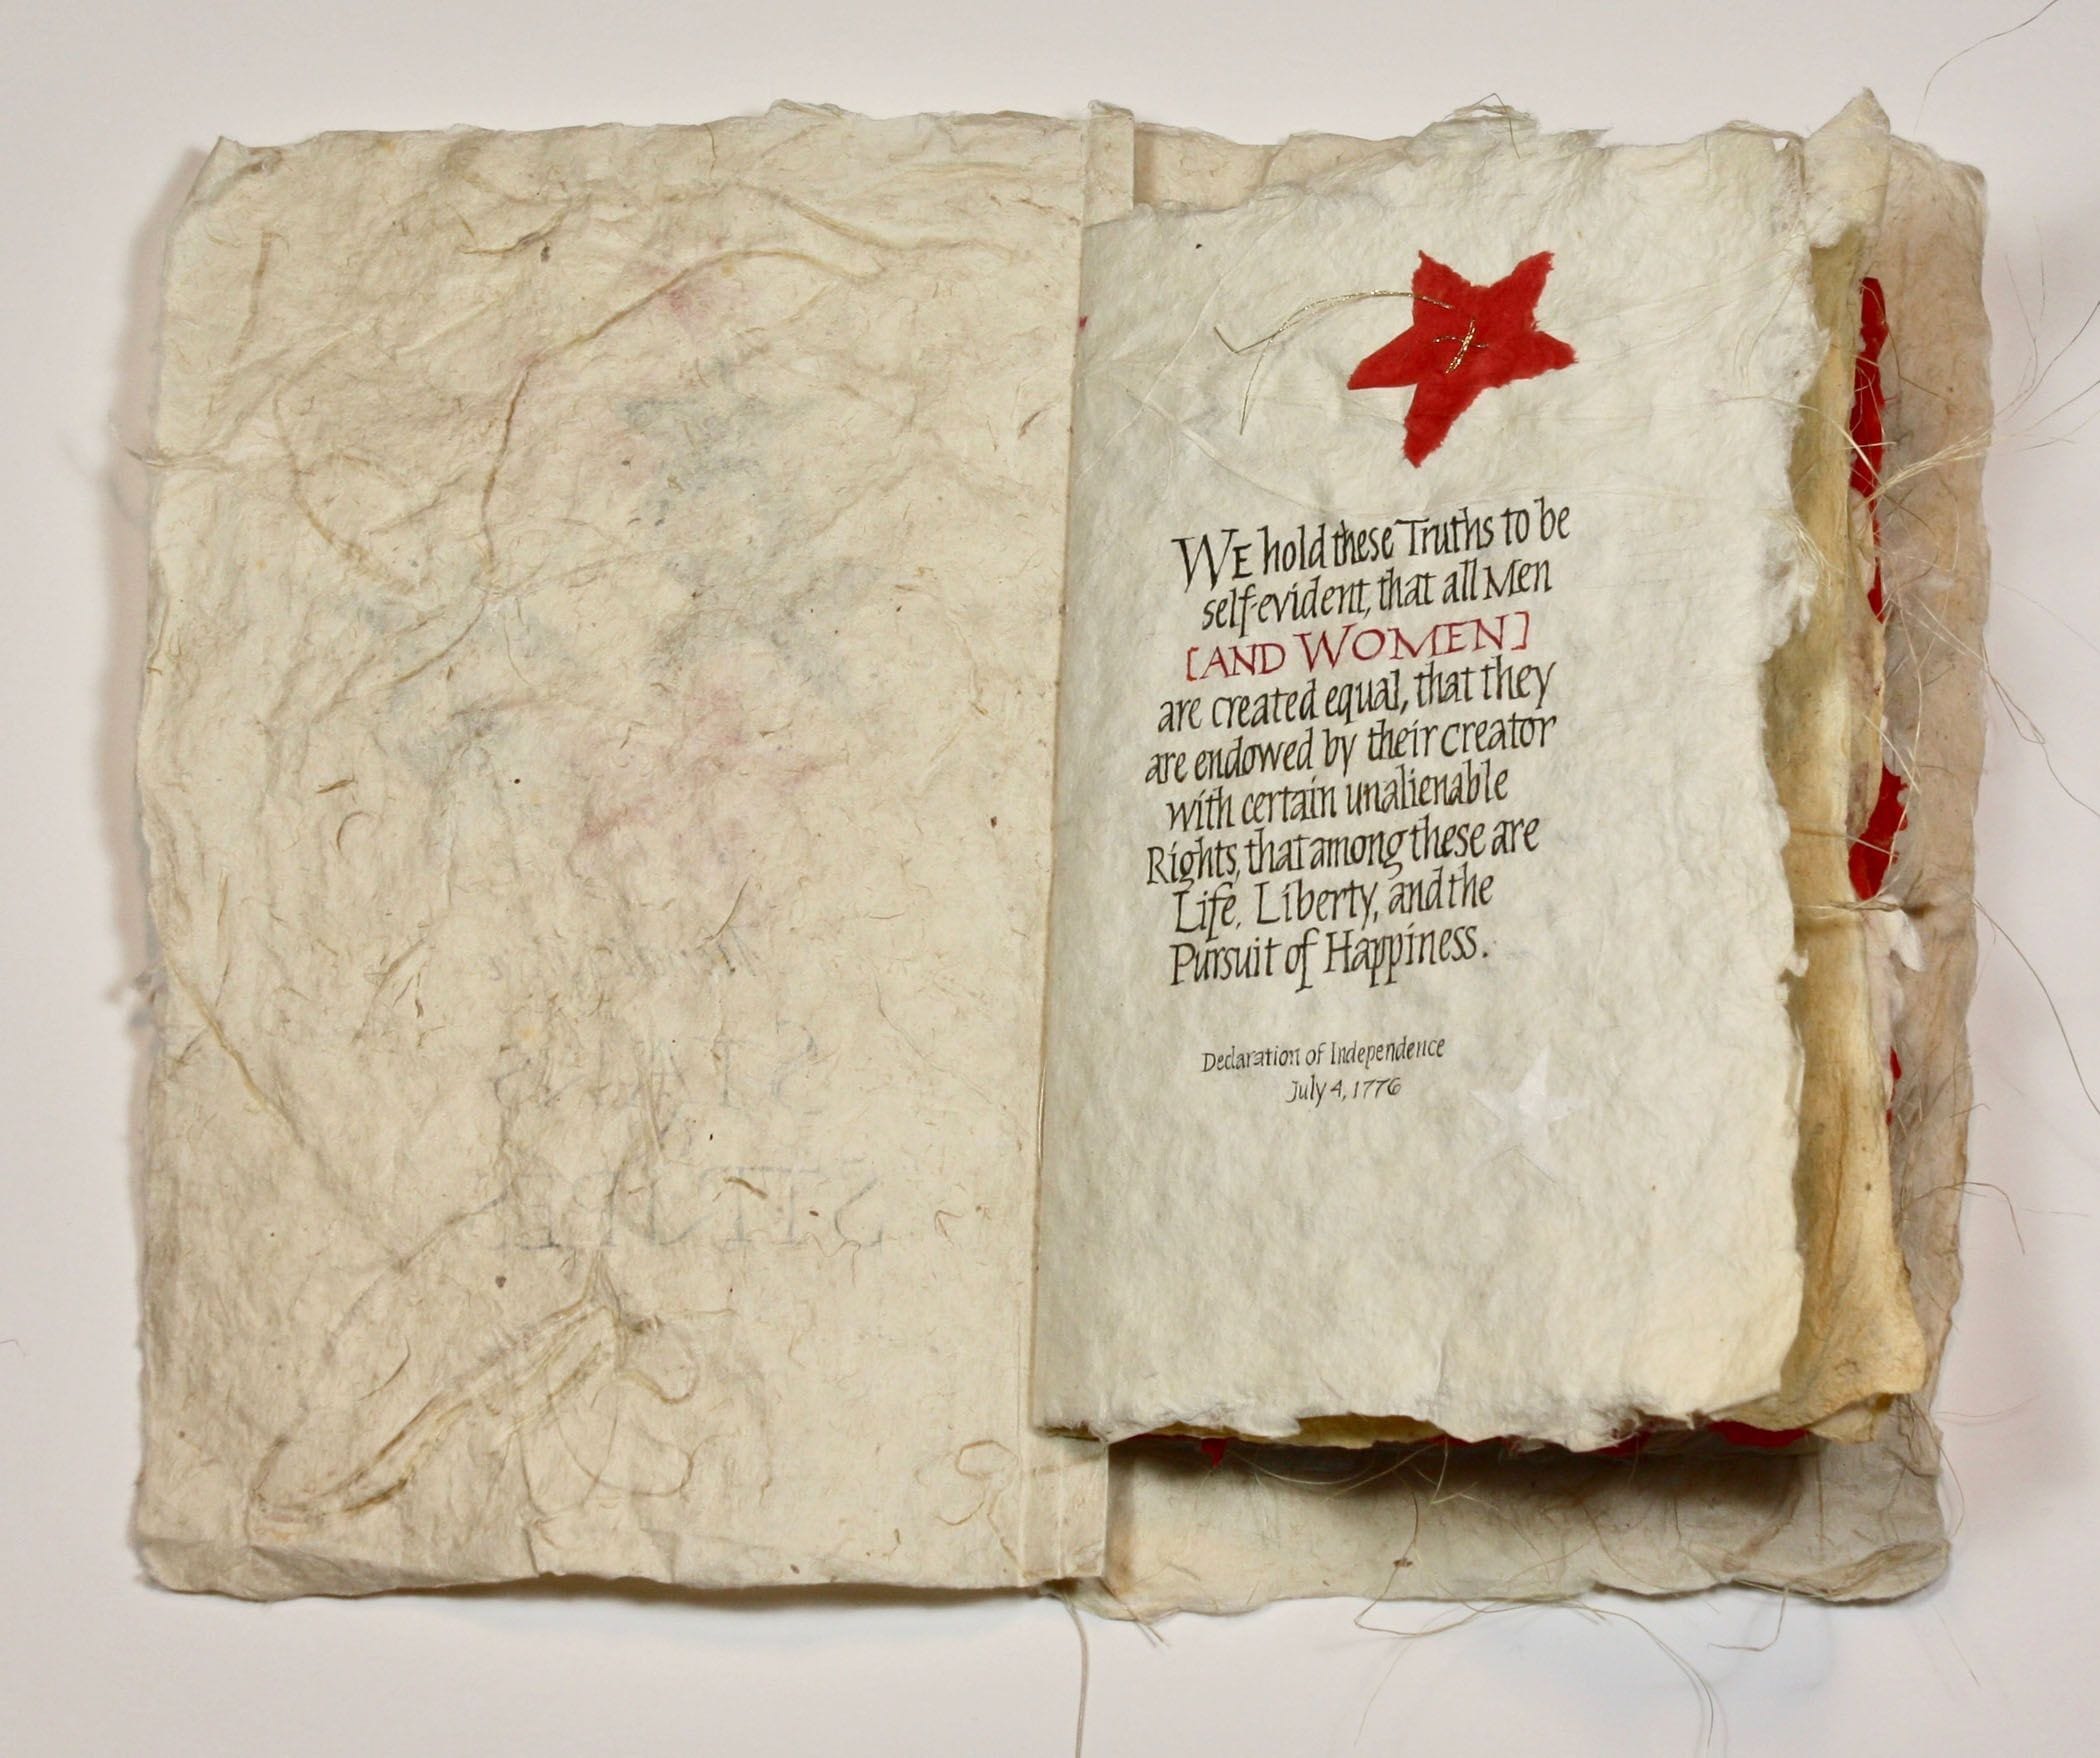 WE hold these Truths to be
self-evident, that all Men
[AND WOMEN]
are created equal, that they
are endowed by their creator
with certain unalienable
Rights, that among these are
Life, Liberty, and the
Pursuit of Happiness.
Declaration of Independence
July 4, 1776